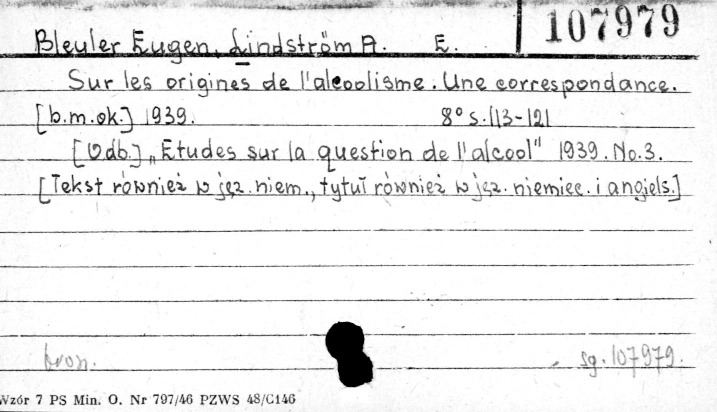 107979
Bleuler Eugen, Lindström A. E.
Sur les origines de l'alcoolisme. Une correspondance.
[b.m.ok.] 1939. 8° s. 113-121
[Odb.] „Études sur la question de l'alcool" 1939. No. 3.
[Tekst również w jęz. niem., tytuł również w jęz. niemiec. i angiels.]
bron. sg. 107979.
Wzór 7 PS Min. O. Nr 797/46 PZWS 48/C146